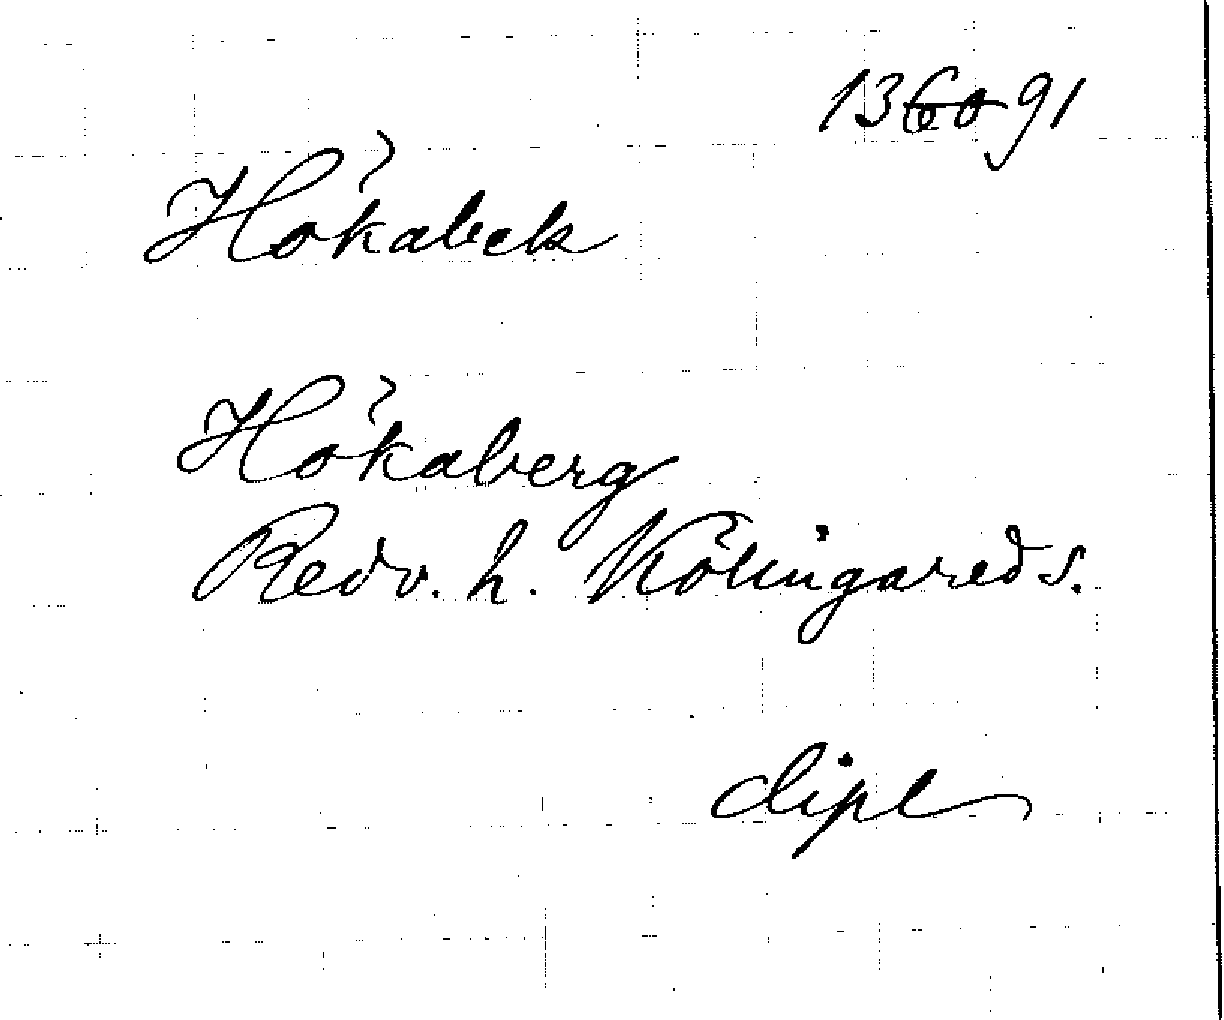 136091
Hökabek
Hökaberg
Redv. h. Kölingared s.
dipl